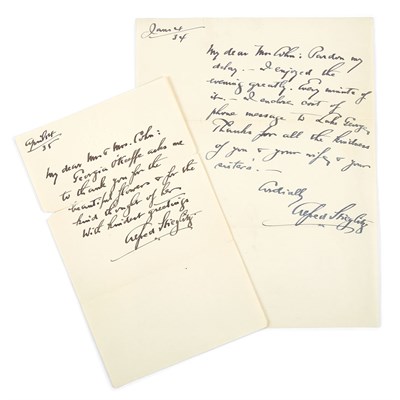 April 14
35
My dear Mr & Mrs. Cohn:
Georgia O'Keeffe asks me
to thank you for the
beautiful flowers & for the
kind thought of her.
With kindest greetings
Alfred Stieglitz
34
My dear Mr. Cohn: Pardon my
delay. — I enjoyed the
evening greatly. Every minute of
it. — I enclose cost of
phone message to Lake George.
Thanks for all the kindness
of you & your wife & your
sisters.
Cordially
Alfred Stieglitz